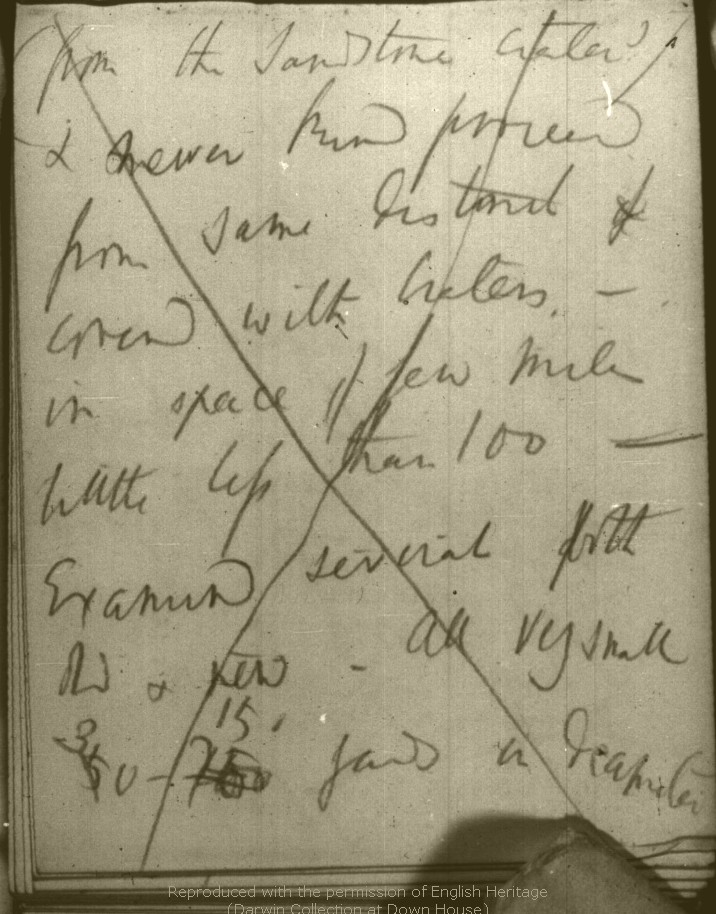 from the Sandstone Craters
& newer kind proceed
from same district &
covered with Craters. —
in space of few miles
little less than 100 —
Examined several both
old & new - all very small
30 - 150 yards in diameter
Reproduced with the permission of English Heritage
(Darwin Collection at Down House)